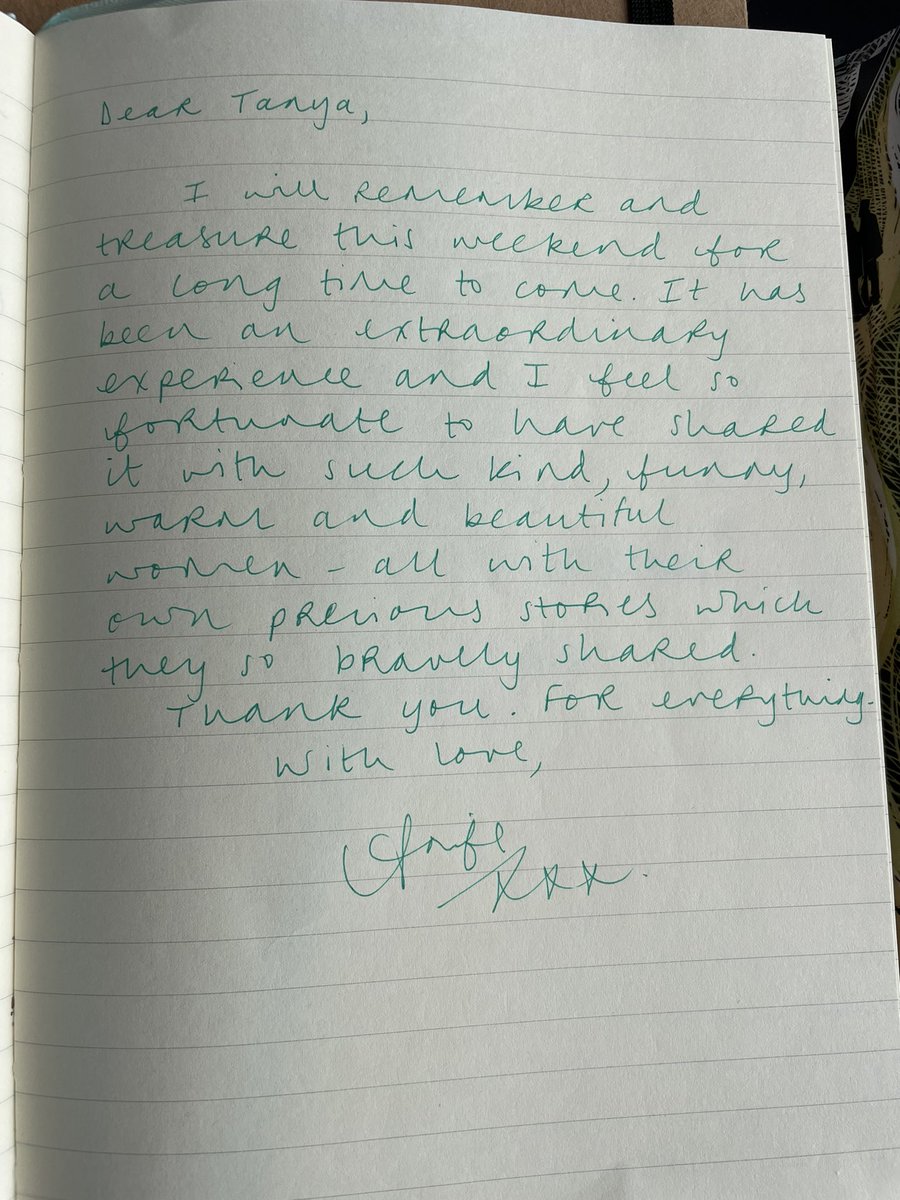 Dear Tanya,
I will remember and
treasure this weekend for
a long time to come. It has
been an extraordinary
experience and I feel so
fortunate to have shared
it with such kind, funny,
warm and beautiful
women – all with their
own precious stories which
they so bravely shared.
Thank you. For everything.
With love,
xxx.